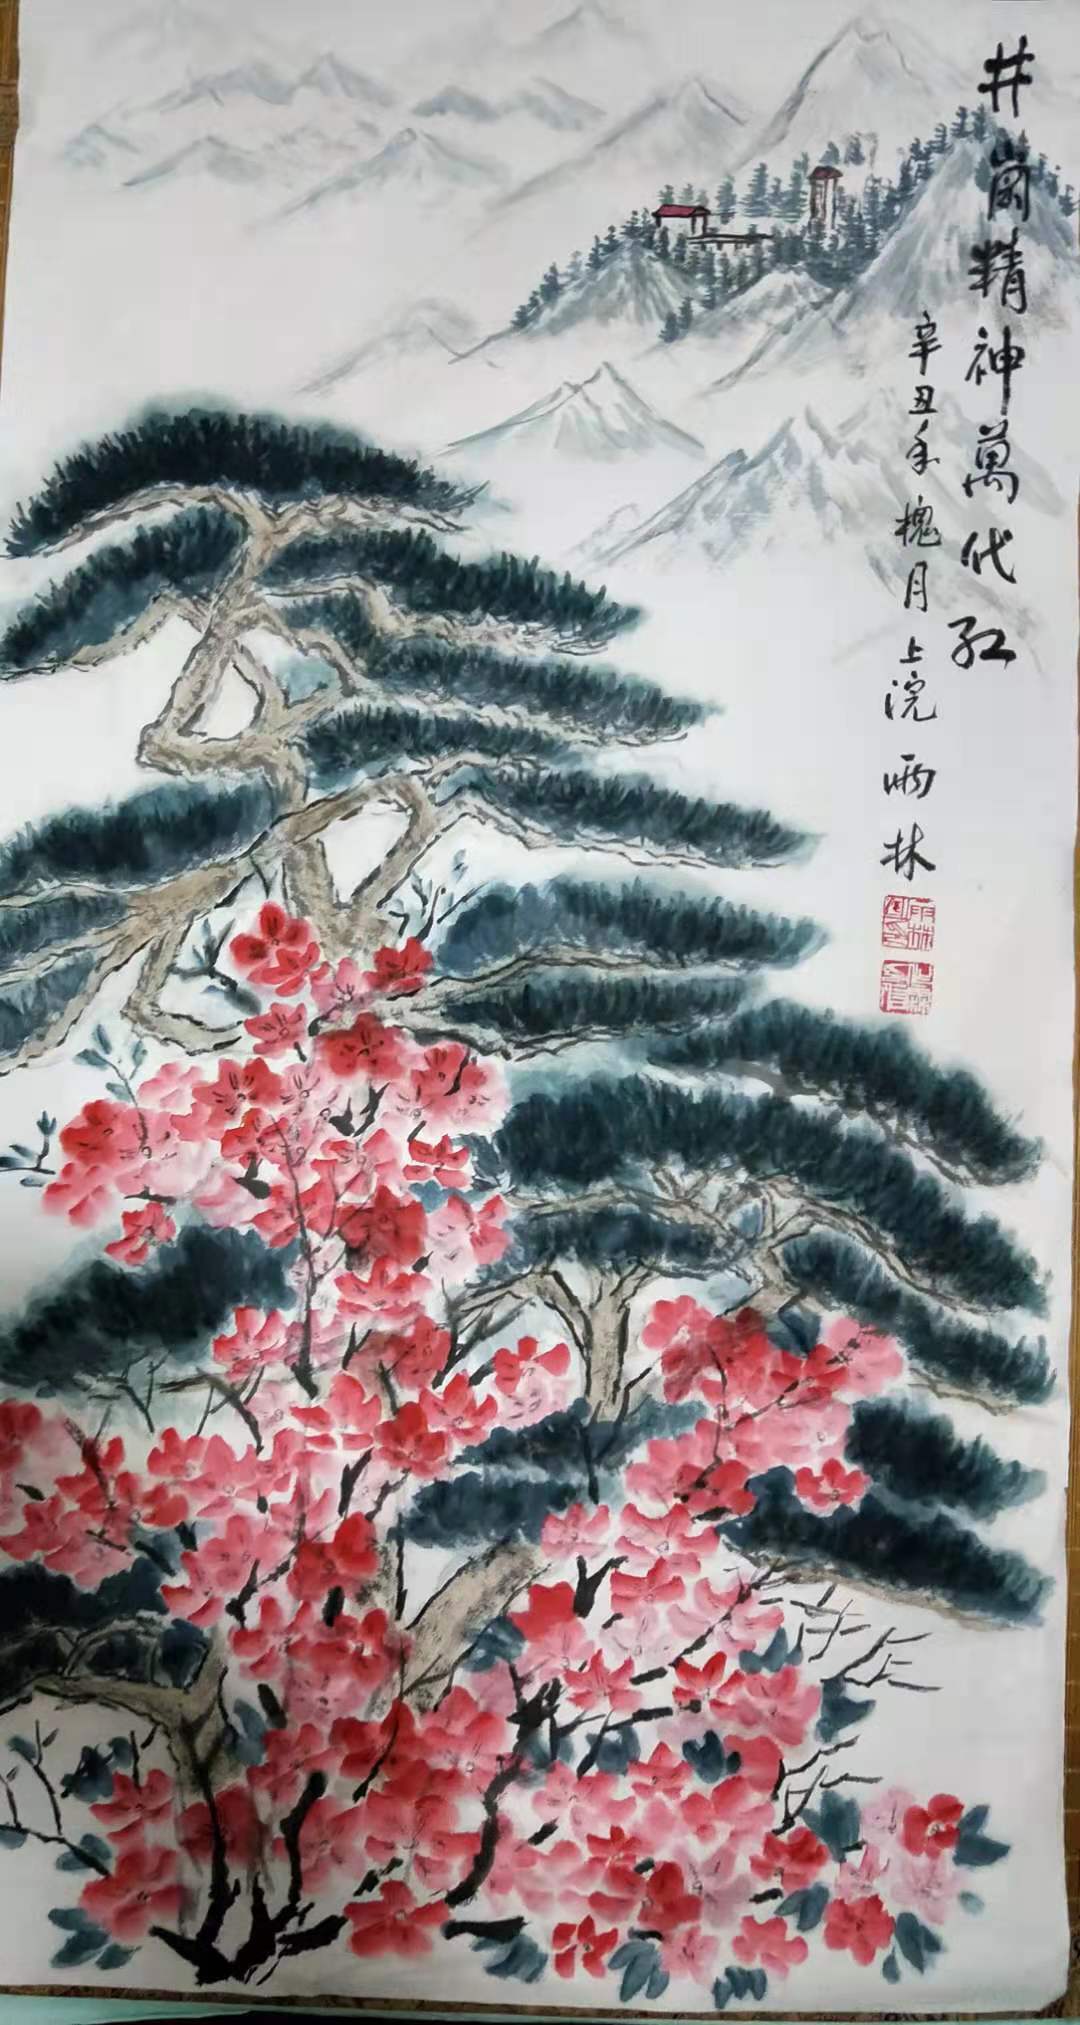 井岗精神萬代红
辛丑年槐月上浣 雨林